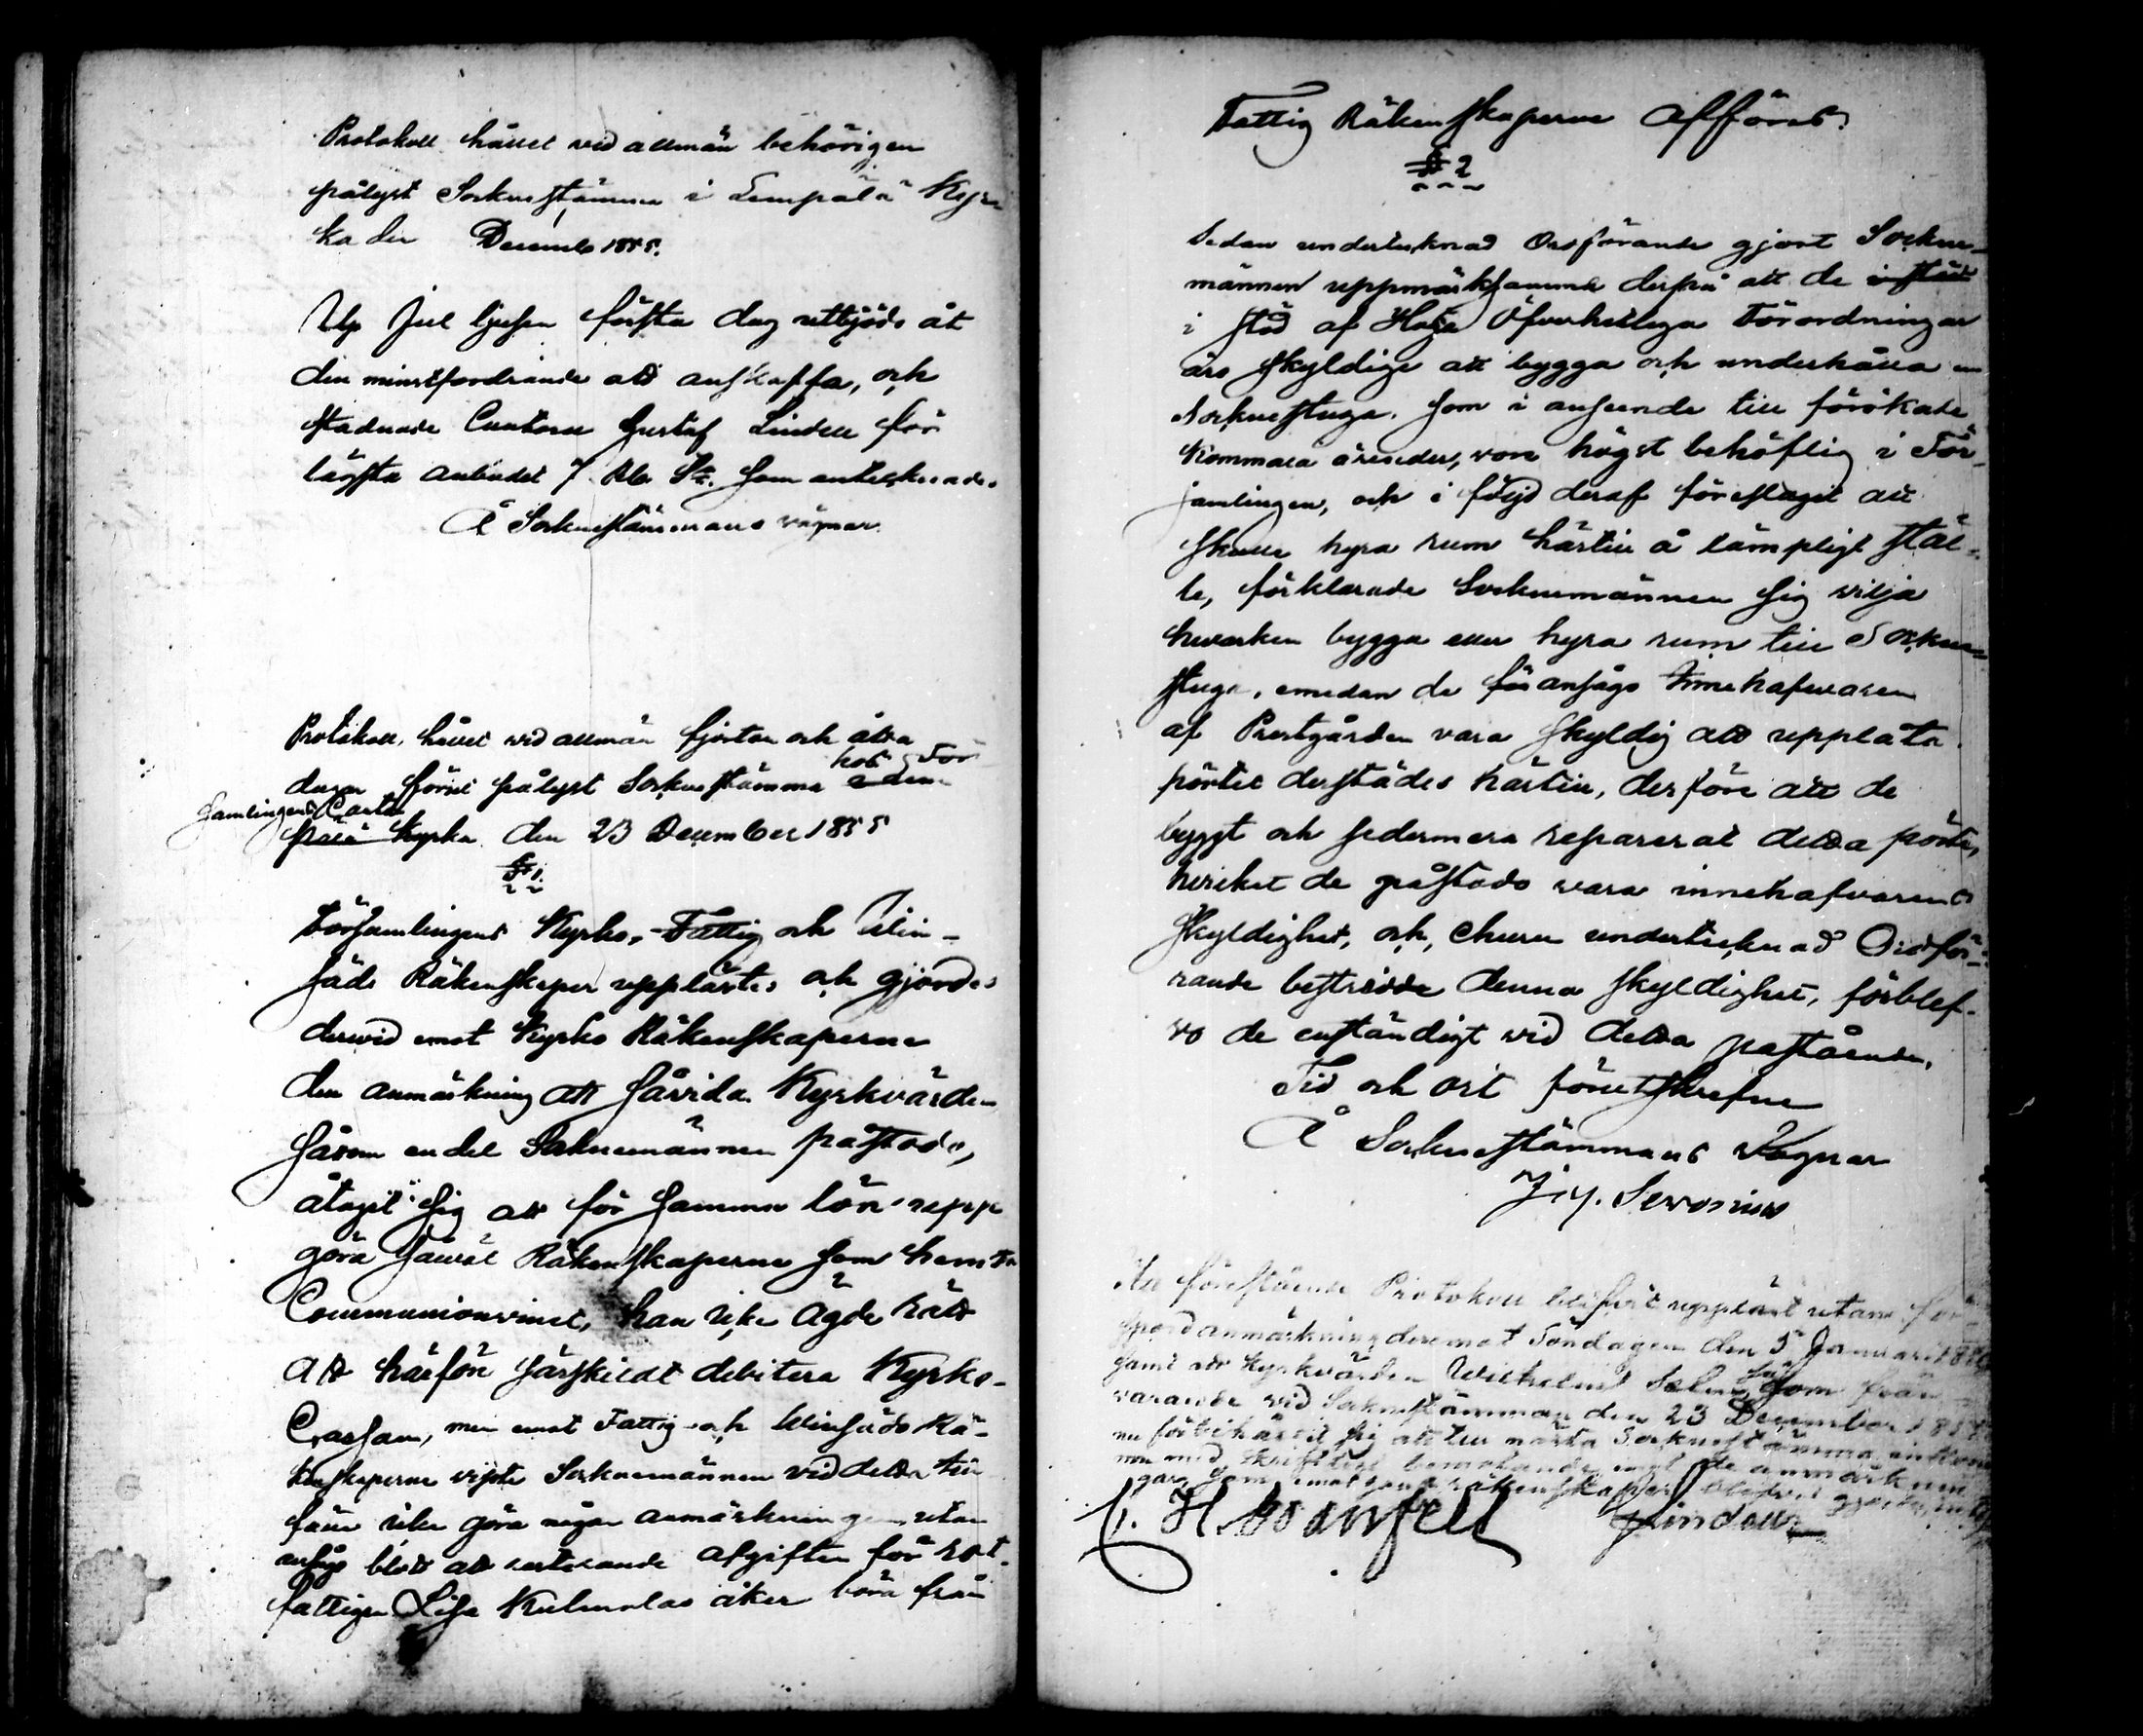 Protokoll hållet vid allmän behörigen
pålyst Sockenstämma i Lempälä Kyr-
ka den Decemb 1855.
Up Jul ljusen första dag utbjöds åt
den minstfordrande att anskaffa, och
stadnade Cantorn Gustaf Lindell för
lägsta anbudet 7 Rb. Sr. som antecknades
Å Sockenstämmans vägnar.
Protokoll, hållet vid allmän fjorton och åtta
dagar förut pålyst Sockenstämma hos För
samlingens
Kyrka den 23 December 1855
§ 1.
Församlingens Kyrko-, Fattig och
säds Räkenskaper upplästes och gjordes
dervid emot Kyrko Räkenskaperne
den anmärkning att såvida Kyrkvärden
såsom endel Sockenmännen påstodo,
åtagit sig att för samma lön upp
göra såwäl Räkenskaperne som hemta
Communionvinet, han icke ägde rätt
att härför särskildt debitera Kyrko-
Cassan, men emot Fattig- och Lånsäds Rä-
kenskaperne visste Sockenmännen vid detta till
fälle icke göra någon anmärkningen, utan
ansågo blott att resterande afgiften för rot
fattigen Lisa Kulmalas åker böra från
Fattig Räkenskaperne afföras.
§ 2
Sedan undertecknad Ordförande gjort Socken-
männen uppmärksamma derpå att de
i stöd af Höga Öfverhetliga Förordningar
äro skyldige att bygga och underhålla en
Sockenstuga, som i anseende till förökade
Kommunala ärender, vore högst behöflig i För-
samlingen, och i följd deraf föreslagit att
skulle hyra rum härtill å lämpligt stäl-
le, förklarade Sockenmännen sig vilja
hwarken bygga eller hyra rum till Socken-
stuga, emedan de ansågo Innehafvaren
af Prestgården vara skyldig att upplåta
pörtet derstädes härtill, derföre att de
byggt och sedermera reparerat detta pörte,
hvilket de påstodo vara innehafvarens
skyldighet, och, ehuru undertecknad Ordfö-
rande bestridde denna skyldighet, förblef-
vo de enständigt vid detta påstående.
Tid och ort förutskrefne
Å Sockenstämmans Vägnar
Jos. Servonius
Att förestående Protokoll blifvit uppläst utan
gjord anmärkning deremot Söndagen den 5 Januari
samt att Kyrkvärden Wilhelm som från
varande vid Sockenstämman den 23 December
nu förbehållit sig att till nästa Sockenstämma
med skriftligt bemötande emot de
som emot räkenskaper blifvit gjorde,
C. H. Lindell